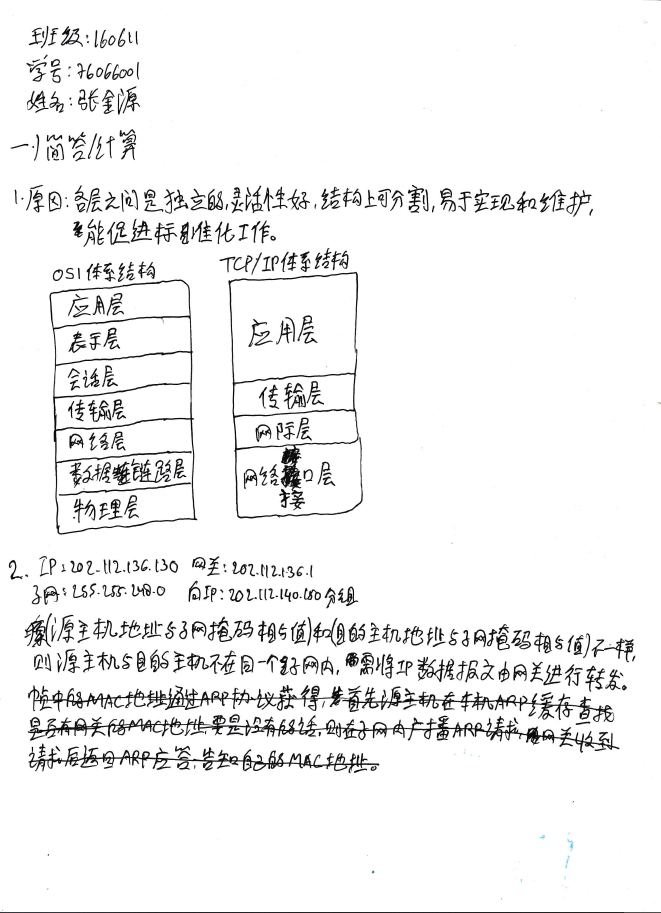 班级:160611
学号:76066001
姓名:张金源
一、简答/计算
1.原因:各层之间是独立的,灵活性好,结构上可分割,易于实现和维护,
能促进标准化工作。
OSI体系结构
应用层
表示层
会话层
传输层
网络层
数据链路层
物理层
TCP/IP体系结构
应用层
传输层
网际层
网络接口层
2. IP:202.112.136.130 网关:202.112.136.1
子网:255.255.248.0 向IP:202.112.140.150分组
(源主机地址与子网掩码相与值)和(目的主机地址与子网掩码相与值)不一样,
则源主机与目的主机不在同一个子网内,需将IP数据报交由网关进行转发。
帧中的MAC地址通过ARP协议获得,首先源主机在本机ARP缓存查找
是否有网关的MAC地址,要是没有的话,则在子网内广播ARP请求,网关收到
请求后返回ARP应答,告知自己的MAC地址。